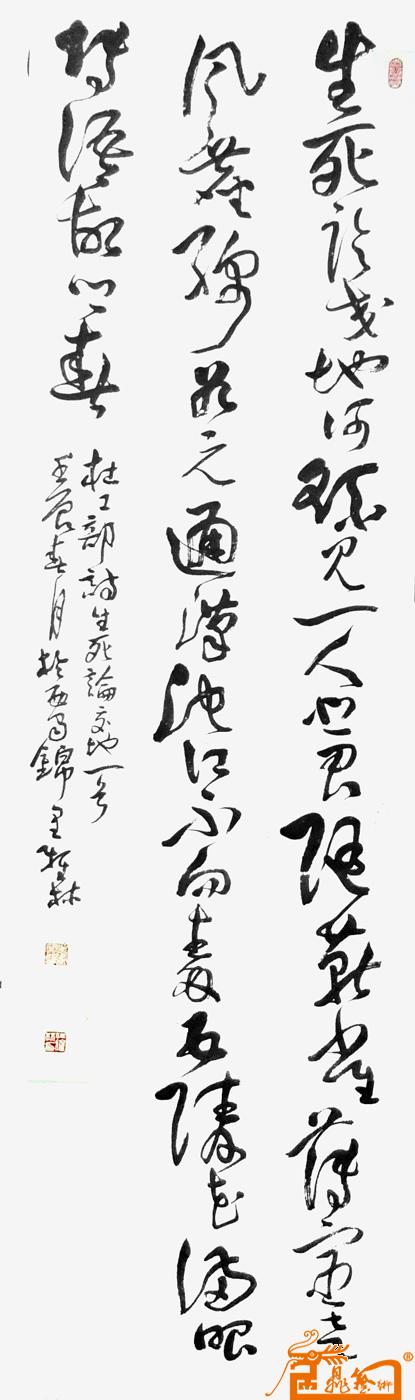 生死論交地何見一人悲君隨燕雀薄宦走
風塵綿谷元通漢沱江不向秦五陵花滿眼
傳語故鄉春
杜工部詩生死論交地一首
壬辰春月於西蜀錦里林
®